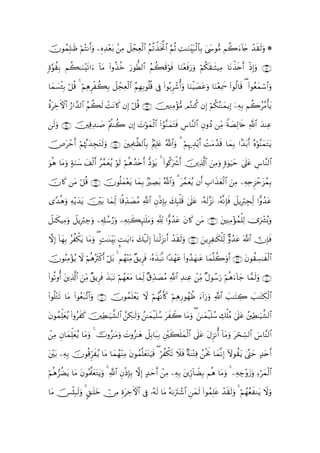 * وَلَقَدْ جَآءَكُم مُّوسَىٰ بِٱلْبَيِّنَـٰتِ ثُمَّ ٱتَّخَذْتُمُ ٱلْعِجْلَ مِنۢ بَعْدِهِۦ وَأَنتُمْ ظَـٰلِمُونَ
﴿٩٢﴾ وَإِذْ أَخَذْنَا مِيثَـٰقَكُمْ وَرَفَعْنَا فَوْقَكُمُ ٱلطُّورَ خُذُوا۟ مَآ ءَاتَيْنَـٰكُم بِقُوَّةٍ
وَٱسْمَعُوا۟ ۖ قَالُوا۟ سَمِعْنَا وَعَصَيْنَا وَأُشْرِبُوا۟ فِى قُلُوبِهِمُ ٱلْعِجْلَ بِكُفْرِهِمْ ۚ قُلْ بِئْسَمَا
يَأْمُرُكُم بِهِۦٓ إِيمَـٰنُكُمْ إِن كُنتُم مُّؤْمِنِينَ ﴿٩٣﴾ قُلْ إِن كَانَتْ لَكُمُ ٱلدَّارُ ٱلْـَٔاخِرَةُ
عِندَ ٱللَّهِ خَالِصَةً مِّن دُونِ ٱلنَّاسِ فَتَمَنَّوُا۟ ٱلْمَوْتَ إِن كُنتُمْ صَـٰدِقِينَ ﴿٩٤﴾ وَلَن
يَتَمَنَّوْهُ أَبَدًۢا بِمَا قَدَّمَتْ أَيْدِيهِمْ ۗ وَٱللَّهُ عَلِيمٌۢ بِٱلظَّـٰلِمِينَ ﴿٩٥﴾ وَلَتَجِدَنَّهُمْ أَحْرَصَ
ٱلنَّاسِ عَلَىٰ حَيَوٰةٍ وَمِنَ ٱلَّذِينَ أَشْرَكُوا۟ ۚ يَوَدُّ أَحَدُهُمْ لَوْ يُعَمَّرُ أَلْفَ سَنَةٍ وَمَا هُوَ
بِمُزَحْزِحِهِۦ مِنَ ٱلْعَذَابِ أَن يُعَمَّرَ ۗ وَٱللَّهُ بَصِيرٌۢ بِمَا يَعْمَلُونَ ﴿٩٦﴾ قُلْ مَن كَانَ
عَدُوًّا لِّجِبْرِيلَ فَإِنَّهُۥ نَزَّلَهُۥ عَلَىٰ قَلْبِكَ بِإِذْنِ ٱللَّهِ مُصَدِّقًا لِّمَا بَيْنَ يَدَيْهِ وَهُدًى
وَبُشْرَىٰ لِلْمُؤْمِنِينَ ﴿٩٧﴾ مَن كَانَ عَدُوًّا لِّلَّهِ وَمَلَـٰٓئِكَتِهِۦ وَرُسُلِهِۦ وَجِبْرِيلَ وَمِيكَىٰلَ
فَإِنَّ ٱللَّهَ عَدُوٌّ لِّلْكَـٰفِرِينَ ﴿٩٨﴾ وَلَقَدْ أَنزَلْنَآ إِلَيْكَ ءَايَـٰتٍۭ بَيِّنَـٰتٍ ۖ وَمَا يَكْفُرُ بِهَآ إِلَّا
ٱلْفَـٰسِقُونَ ﴿٩٩﴾ أَوَكُلَّمَا عَـٰهَدُوا۟ عَهْدًا نَّبَذَهُۥ فَرِيقٌ مِّنْهُم ۚ بَلْ أَكْثَرُهُمْ لَا يُؤْمِنُونَ
﴿١٠٠﴾ وَلَمَّا جَآءَهُمْ رَسُولٌ مِّنْ عِندِ ٱللَّهِ مُصَدِّقٌ لِّمَا مَعَهُمْ نَبَذَ فَرِيقٌ مِّنَ ٱلَّذِينَ أُوتُوا۟
ٱلْكِتَـٰبَ كِتَـٰبَ ٱللَّهِ وَرَآءَ ظُهُورِهِمْ كَأَنَّهُمْ لَا يَعْلَمُونَ ﴿١٠١﴾ وَٱتَّبَعُوا۟ مَا تَتْلُوا۟
ٱلشَّيَـٰطِينُ عَلَىٰ مُلْكِ سُلَيْمَـٰنَ ۖ وَمَا كَفَرَ سُلَيْمَـٰنُ وَلَـٰكِنَّ ٱلشَّيَـٰطِينَ كَفَرُوا۟ يُعَلِّمُونَ
ٱلنَّاسَ ٱلسِّحْرَ وَمَآ أُنزِلَ عَلَى ٱلْمَلَكَيْنِ بِبَابِلَ هَـٰرُوتَ وَمَـٰرُوتَ ۚ وَمَا يُعَلِّمَانِ مِنْ
أَحَدٍ حَتَّىٰ يَقُولَآ إِنَّمَا نَحْنُ فِتْنَةٌ فَلَا تَكْفُرْ ۖ فَيَتَعَلَّمُونَ مِنْهُمَا مَا يُفَرِّقُونَ بِهِۦ بَيْنَ
ٱلْمَرْءِ وَزَوْجِهِۦ ۚ وَمَا هُم بِضَآرِّينَ بِهِۦ مِنْ أَحَدٍ إِلَّا بِإِذْنِ ٱللَّهِ ۚ وَيَتَعَلَّمُونَ مَا يَضُرُّهُمْ
وَلَا يَنفَعُهُمْ ۚ وَلَقَدْ عَلِمُوا۟ لَمَنِ ٱشْتَرَىٰهُ مَا لَهُۥ فِى ٱلْـَٔاخِرَةِ مِنْ خَلَـٰقٍ ۚ وَلَبِئْسَ مَا